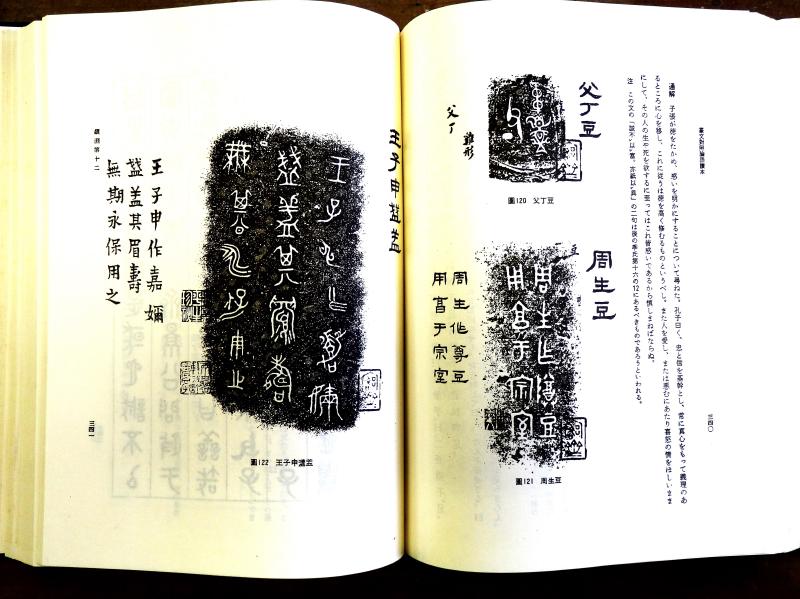 三四〇
通解 子張が徳をたかめ、惑いを明かにすることについて尋ねた。孔子曰く、忠と信を基幹とし、常に真心をもって義理のあ
るところに心を移し、これに従うは徳を高く修むるものというべし。また人を愛し、または悪むにあたり喜怒の情をほしいまま
にして、その人の生や死を欲するに至ってはこれ皆惑いであるから慎しまねばならぬ。
注 この文の「誠不以富、亦祇以異」の二句は後の季氏第十六の12にあるべきものであろうといわれる。
父丁豆
圖120 父丁豆
父丁
周生豆
圖121 周生豆
周生作尊豆
用享于宗室
王子申盞盖
圖122 王子申盞盖
王子申作嘉嬭
盞盖其眉壽
無期永保用之
顔淵第十二
三四一